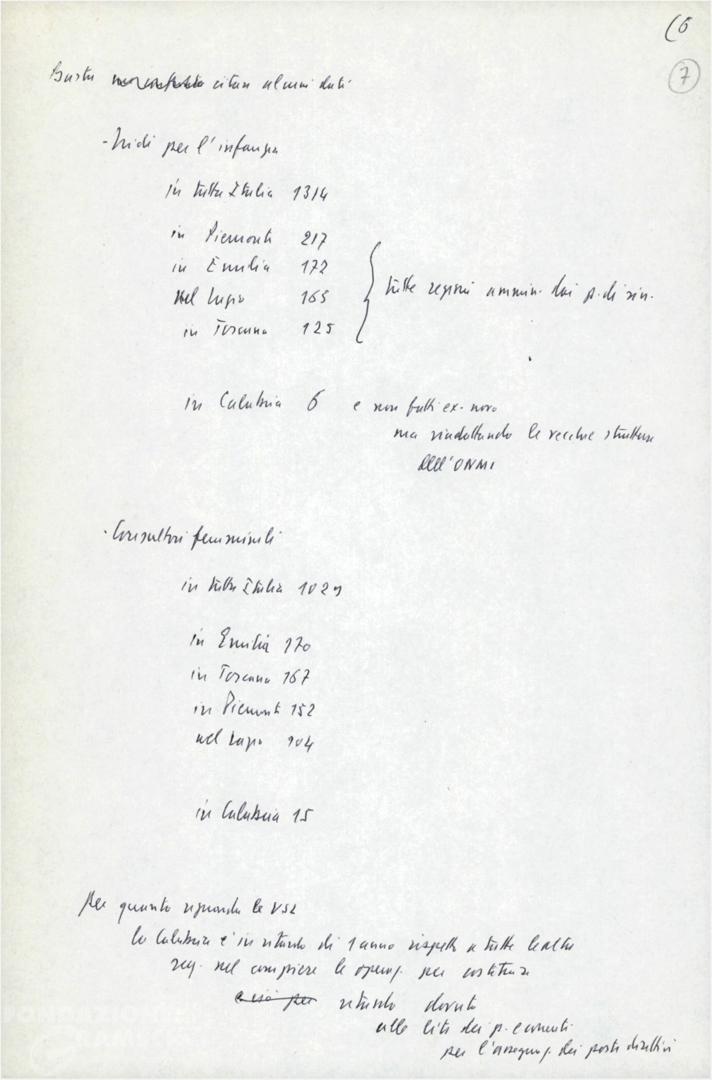 (6
7
Basta citare alcuni dati
- Nidi per l'infanzia
in tutta Italia 1314
in Piemonte 217
in Emilia 172
nel Lazio 165
in Toscana 125
tutte regioni ammin. dai p. di sin.
in Calabria 6 e non fatti ex-novo
ma riadattando le vecchie strutture
dell'ONMI
- Consultori femminili
in tutta Italia 1029
in Emilia 170
in Toscana 167
in Piemonte 152
nel Lazio 104
in Calabria 15
Per quanto riguarda le USL
la Calabria è in ritardo di 1 anno rispetto a tutte le altre
reg. nel compiere le operaz. per costituire
ritardo dovuto
alle liti dei p. 
per l'assegnaz. dei posti direttivi